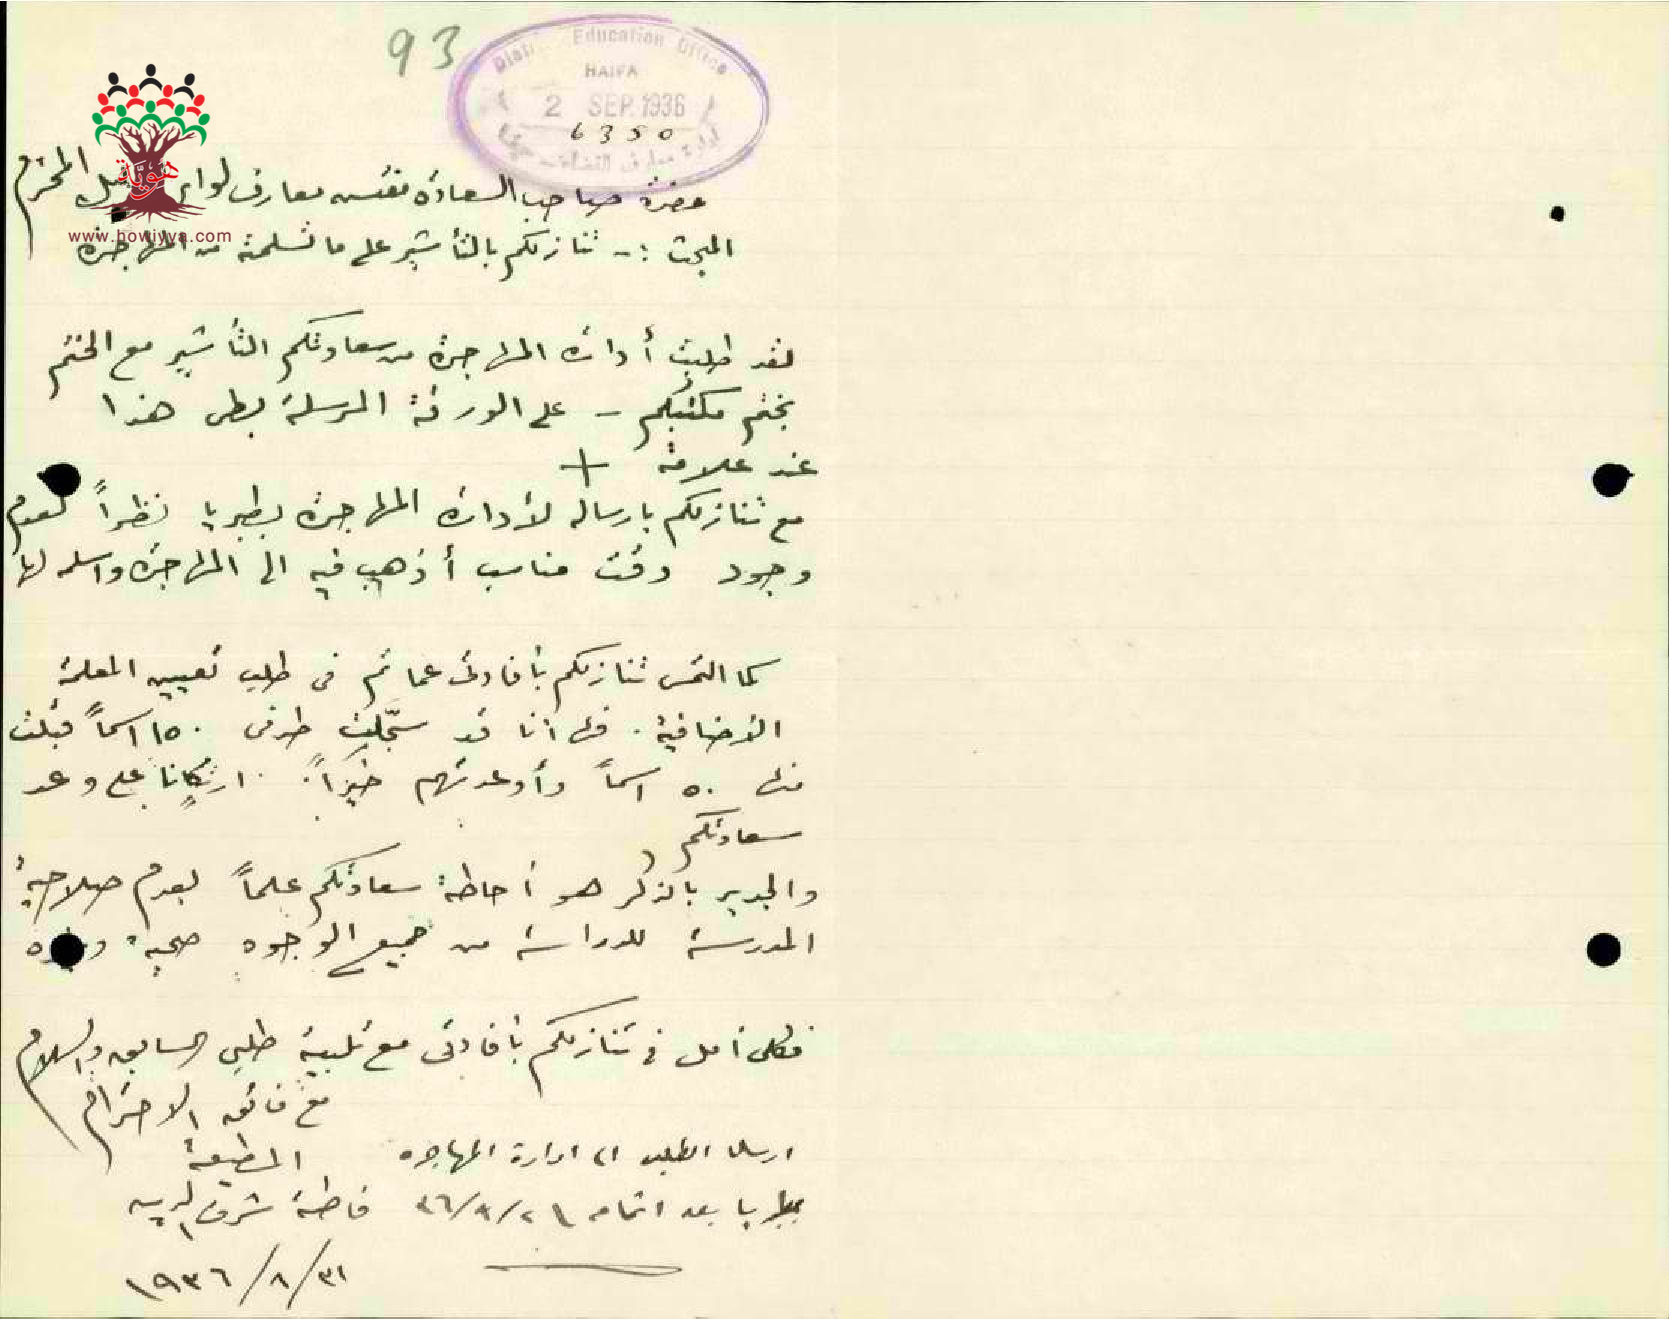 93
District Education Office
HAIFA
2 SEP. 1936
6350
ادارة معارف القضاء - حيفا
هويّة
www.howiyya.com
حضرة صاحب السعادة مفتش معارف لواء المحترم
المبحث :- تنازلكم بالتأشير على ما تسلمته من المهاجرة
لقد طلبت أدارة المهاجرة من سعادتكم التأشير مع الختم
بختم مكتبكم - على الورقة المرسلة بطى هذا
عند علامة +
مع تنازلكم بارساله لأدارة المهاجرة بطبريا نظراً لعدم
وجود وقت مناسب أذهب فيه الى المهاجرة واسلمه لها
كما التمس تنازلكم بأفادتى عما تم فى طلب تعيين المعلمة
الأضافية . فها أنا قد سجّلت طرفى ١٥٠ اسماً قبلت
منها ٥٠ اسماً وأوعدتهم خيراً . ارتكانا على وعد
سعادتكم
والجدير بالذكر هو أحاطة سعادتكم علماً بعدم صلاحية
المدرسة للدراسة من جميع الوجوه صحية وغيره
فكلى أمل فى تنازلكم بأفادتى مع تلبية طلبى السابق والسلام
مع فائق الاحترام
ارسل الطلب الى ادارة المهاجره المطيعة
بطبريا بعد اتمامه فاطمة شرف الدين
٣١/٨/١٩٣٦